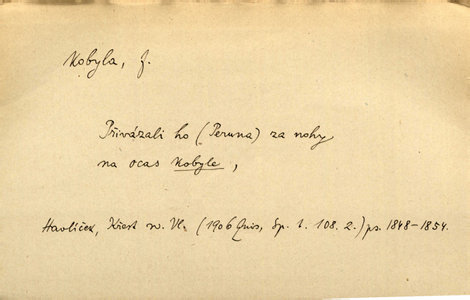 Kobyla, f.
Přivázali ho (Peruna) za nohy
na ocas kobyle,
Havlíček, Křest sv. Vl. (1906 Quis, Sp. 1. 108. 2.) ps. 1848–1854.